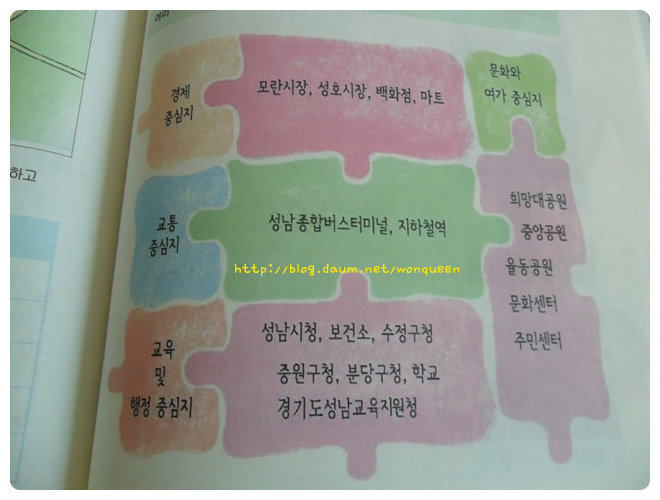 하고
경제
중심지
모란시장, 성호시장, 백화점, 마트
문화와
여가 중심지
교통
중심지
성남종합버스터미널, 지하철역
http://blog.daum.net/wonqueen
희망대공원
중앙공원
율동공원
문화센터
주민센터
교육
및
행정 중심지
성남시청, 보건소, 수정구청
중원구청, 분당구청, 학교
경기도성남교육지원청